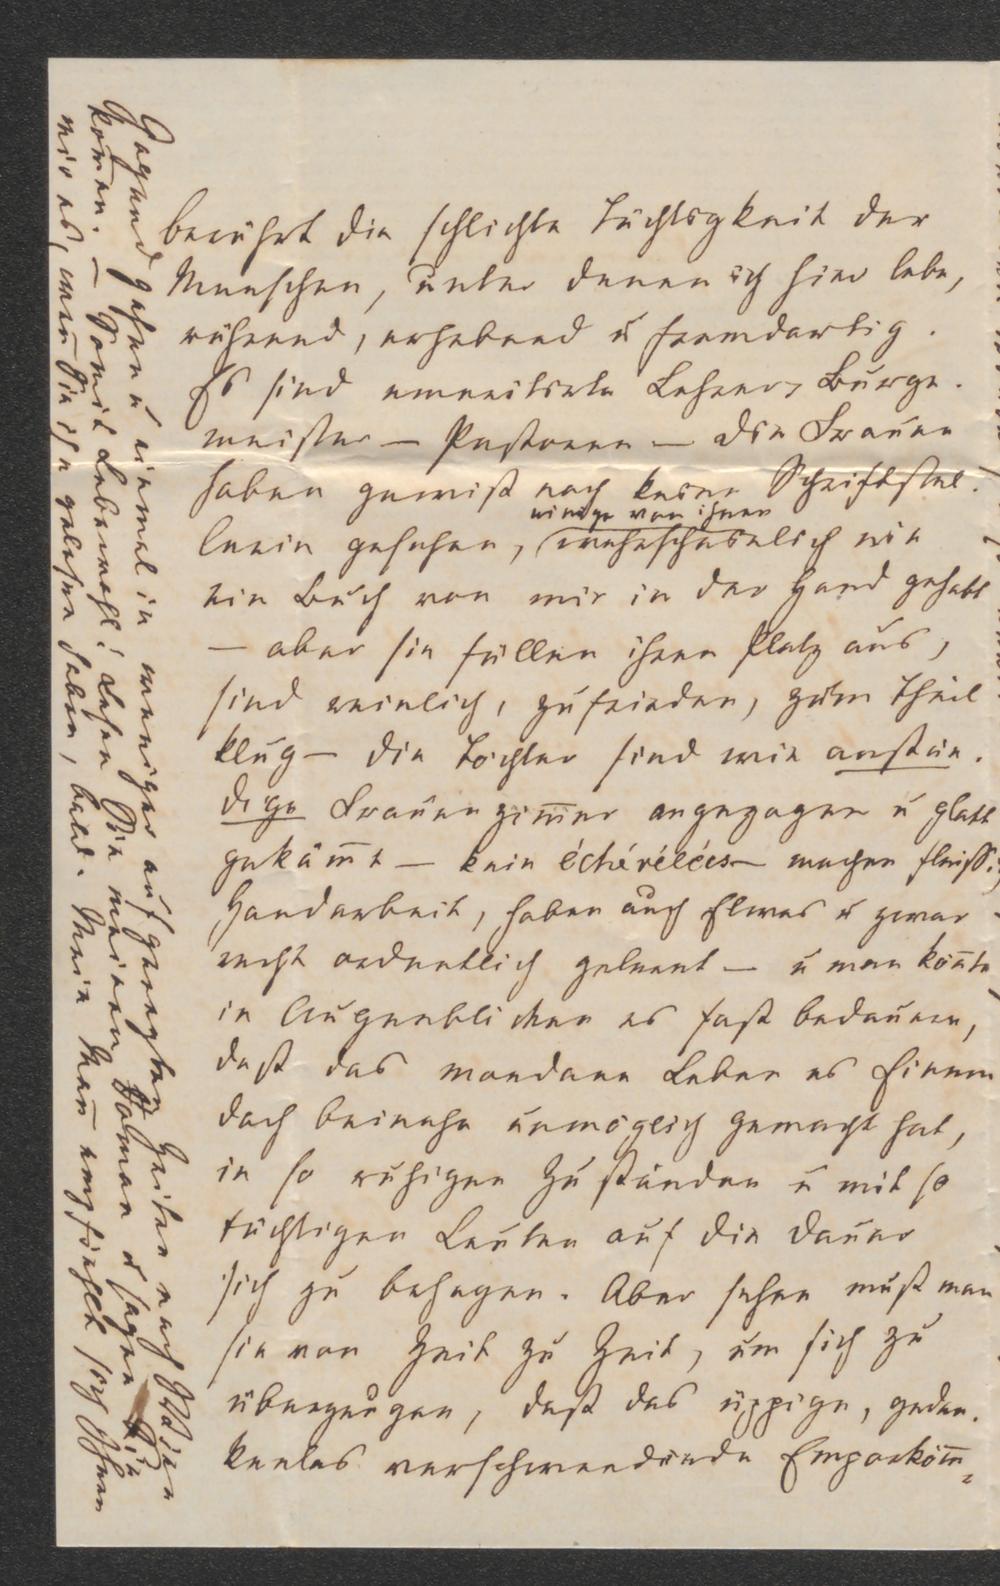 berührt die schlichte Tüchtigkeit der
Menschen, unter denen ich hier lebe,
rührend, erhebend u fremdartig.
Es sind emeritirte Lehrer, Burge-
meister — Pastoren — die Frauen
haben gewiß noch keine Schriftstel-
lerin gesehen, wahrscheinlich nie
einige von ihnen
ein Buch von mir in der Hand gehabt
— aber sie füllen ihren Platz aus,
sind reinlich, zufrieden, zum Theil
klug — die Töchter sind wie anstän-
dige Frauenzim̄er angezogen u glatt
gekäm̄t — kein échévélées — machen fleissig
Handarbeit, haben auch Etwas u zwar
recht ordentlich gelernt — u man kön̄te
in Augenblicken es fast bedauern,
daß das mondane Leben es Einem
doch beinahe unmöglich gemacht hat,
in so ruhigen Zuständen u mit so
tüchtigen Leuten auf die Dauer
sich zu behagen. Aber sehen muß man
sie von Zeit zu Zeit, um sich zu
überzeugen, daß das üppige, gedan-
kenlos verschwendende Emporköm̄-
Gegend gehen u einmal in weniger aufgeregten Zeiten nach
kom̄en. — Somit Lebewohl! Lesen Sie meinen Roman u sagen Sie
mir es, wen̄ Sie ihn gelesen haben, bald. Mein Man̄ empfiehlt sich Ihnen